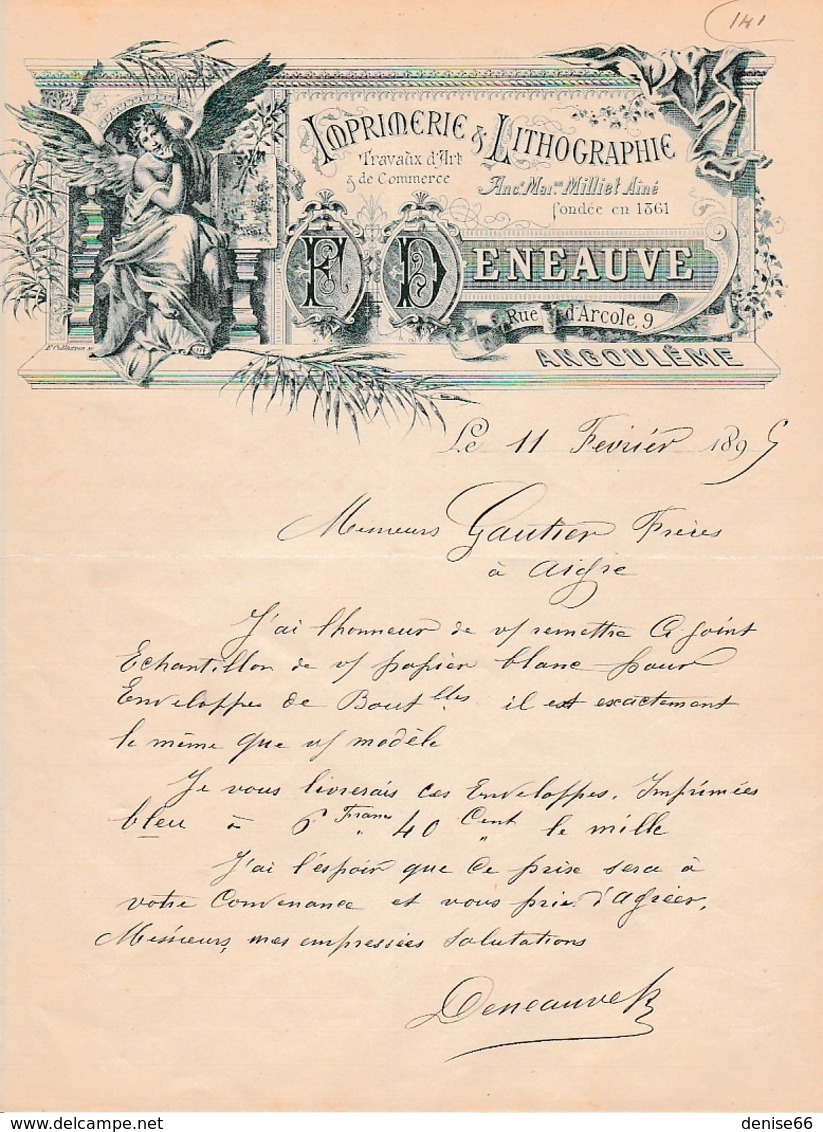 141
IMPRIMERIE & LITHOGRAPHIE
Travaux d'Art
& de Commerce
Ancne Maison Milliet Ainé
fondée en 1861
F DENEAUVE
Rue d'Arcole, 9
ANGOULÊME
Le 11 Février 1895
Messieurs Gautier Frères
à Aigre
J'ai lhonneur de v/ remettre Ci joint
Echantillon de v/ papier blanc pour
Enveloppe de Boutlles il est exactement
le même que v/ modèle
Je vous livrerais ces Enveloppes, Imprimées
bleu à 6 Francs 40 Cent le mille
J'ai l'espoir que ce prix sera à
votre Convenance et vous prie d'agréer,
Messieurs, mes empressées salutations
Deneauve
denise66